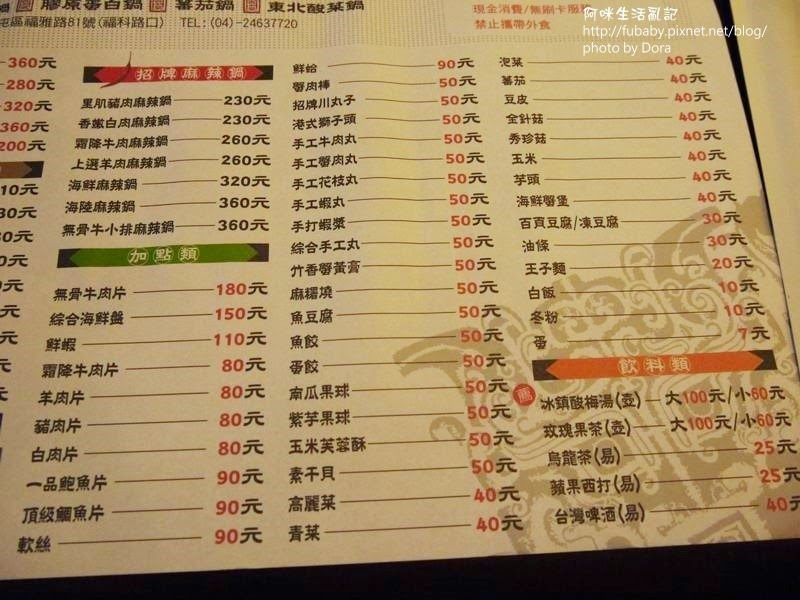 膠原蛋白鍋 番茄鍋 東北酸菜鍋
屯區福雅路81號(福科路口) TEL:(04)-24637720
現金消費/無刷卡服務
禁止攜帶外食
阿咪生活亂記
http://fubaby.pixnet.net/blog/
photo by Dora
360元
280元
320元
360元
200元
招牌麻辣鍋
里肌豬肉麻辣鍋 230元
香嫩白肉麻辣鍋 230元
霜降牛肉麻辣鍋 260元
上選羊肉麻辣鍋 260元
海鮮麻辣鍋 320元
海陸麻辣鍋 360元
無骨牛小排麻辣鍋 360元
加點類
無骨牛肉片 180元
綜合海鮮盤 150元
鮮蝦 110元
霜降牛肉片 80元
羊肉片 80元
豬肉片 80元
白肉片 80元
一品鮑魚片 90元
頂級鯛魚片 90元
軟絲 90元
鮮蛤 90元
蟹肉棒 50元
招牌川丸子 50元
港式獅子頭 50元
手工牛肉丸 50元
手工蟹肉丸 50元
手工花枝丸 50元
手工蝦丸 50元
手打蝦漿 50元
綜合手工丸 50元
竹香蟹黃膏 50元
麻糬燒 50元
魚豆腐 50元
魚餃 50元
蛋餃 50元
南瓜果球 50元
紫芋果球 50元
玉米芙蓉酥 50元
素干貝 50元
高麗菜 40元
青菜 40元
泡菜 40元
番茄 40元
豆皮 40元
金針菇 40元
秀珍菇 40元
玉米 40元
芋頭 40元
海鮮蟹堡 40元
百頁豆腐/凍豆腐 30元
油條 30元
王子麵 20元
白飯 10元
冬粉 10元
蛋 7元
飲料類
薦 冰鎮酸梅湯(壺) 大100元/小60元
玫瑰果茶(壺) 大100元/小60元
烏龍茶(易) 25元
蘋果西打(易) 25元
台灣啤酒(易) 40元